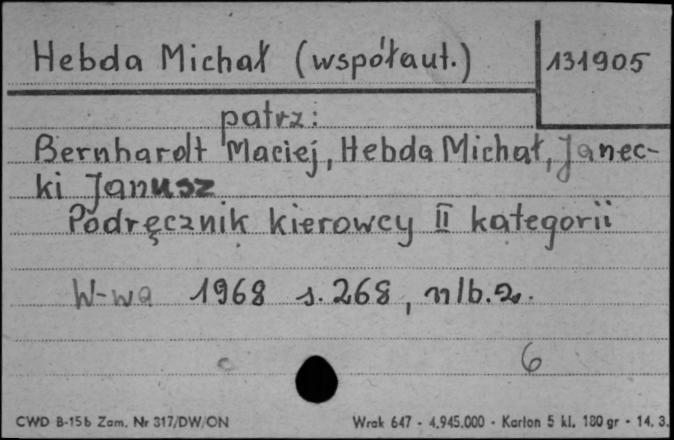 Hebda Michał (współaut.)
131905
patrz:
Bernhardt Maciej, Hebda Michał, Janec-
ki Janusz
Podręcznik kierowcy II kategorii
W-wa 1968 s. 268, nlb. 2.
6
CWD B-15b Zam. Nr 317/DW/ON
Wrak 647 - 4.945.000 - Karton 5 kl. 180 gr - 14. 3.